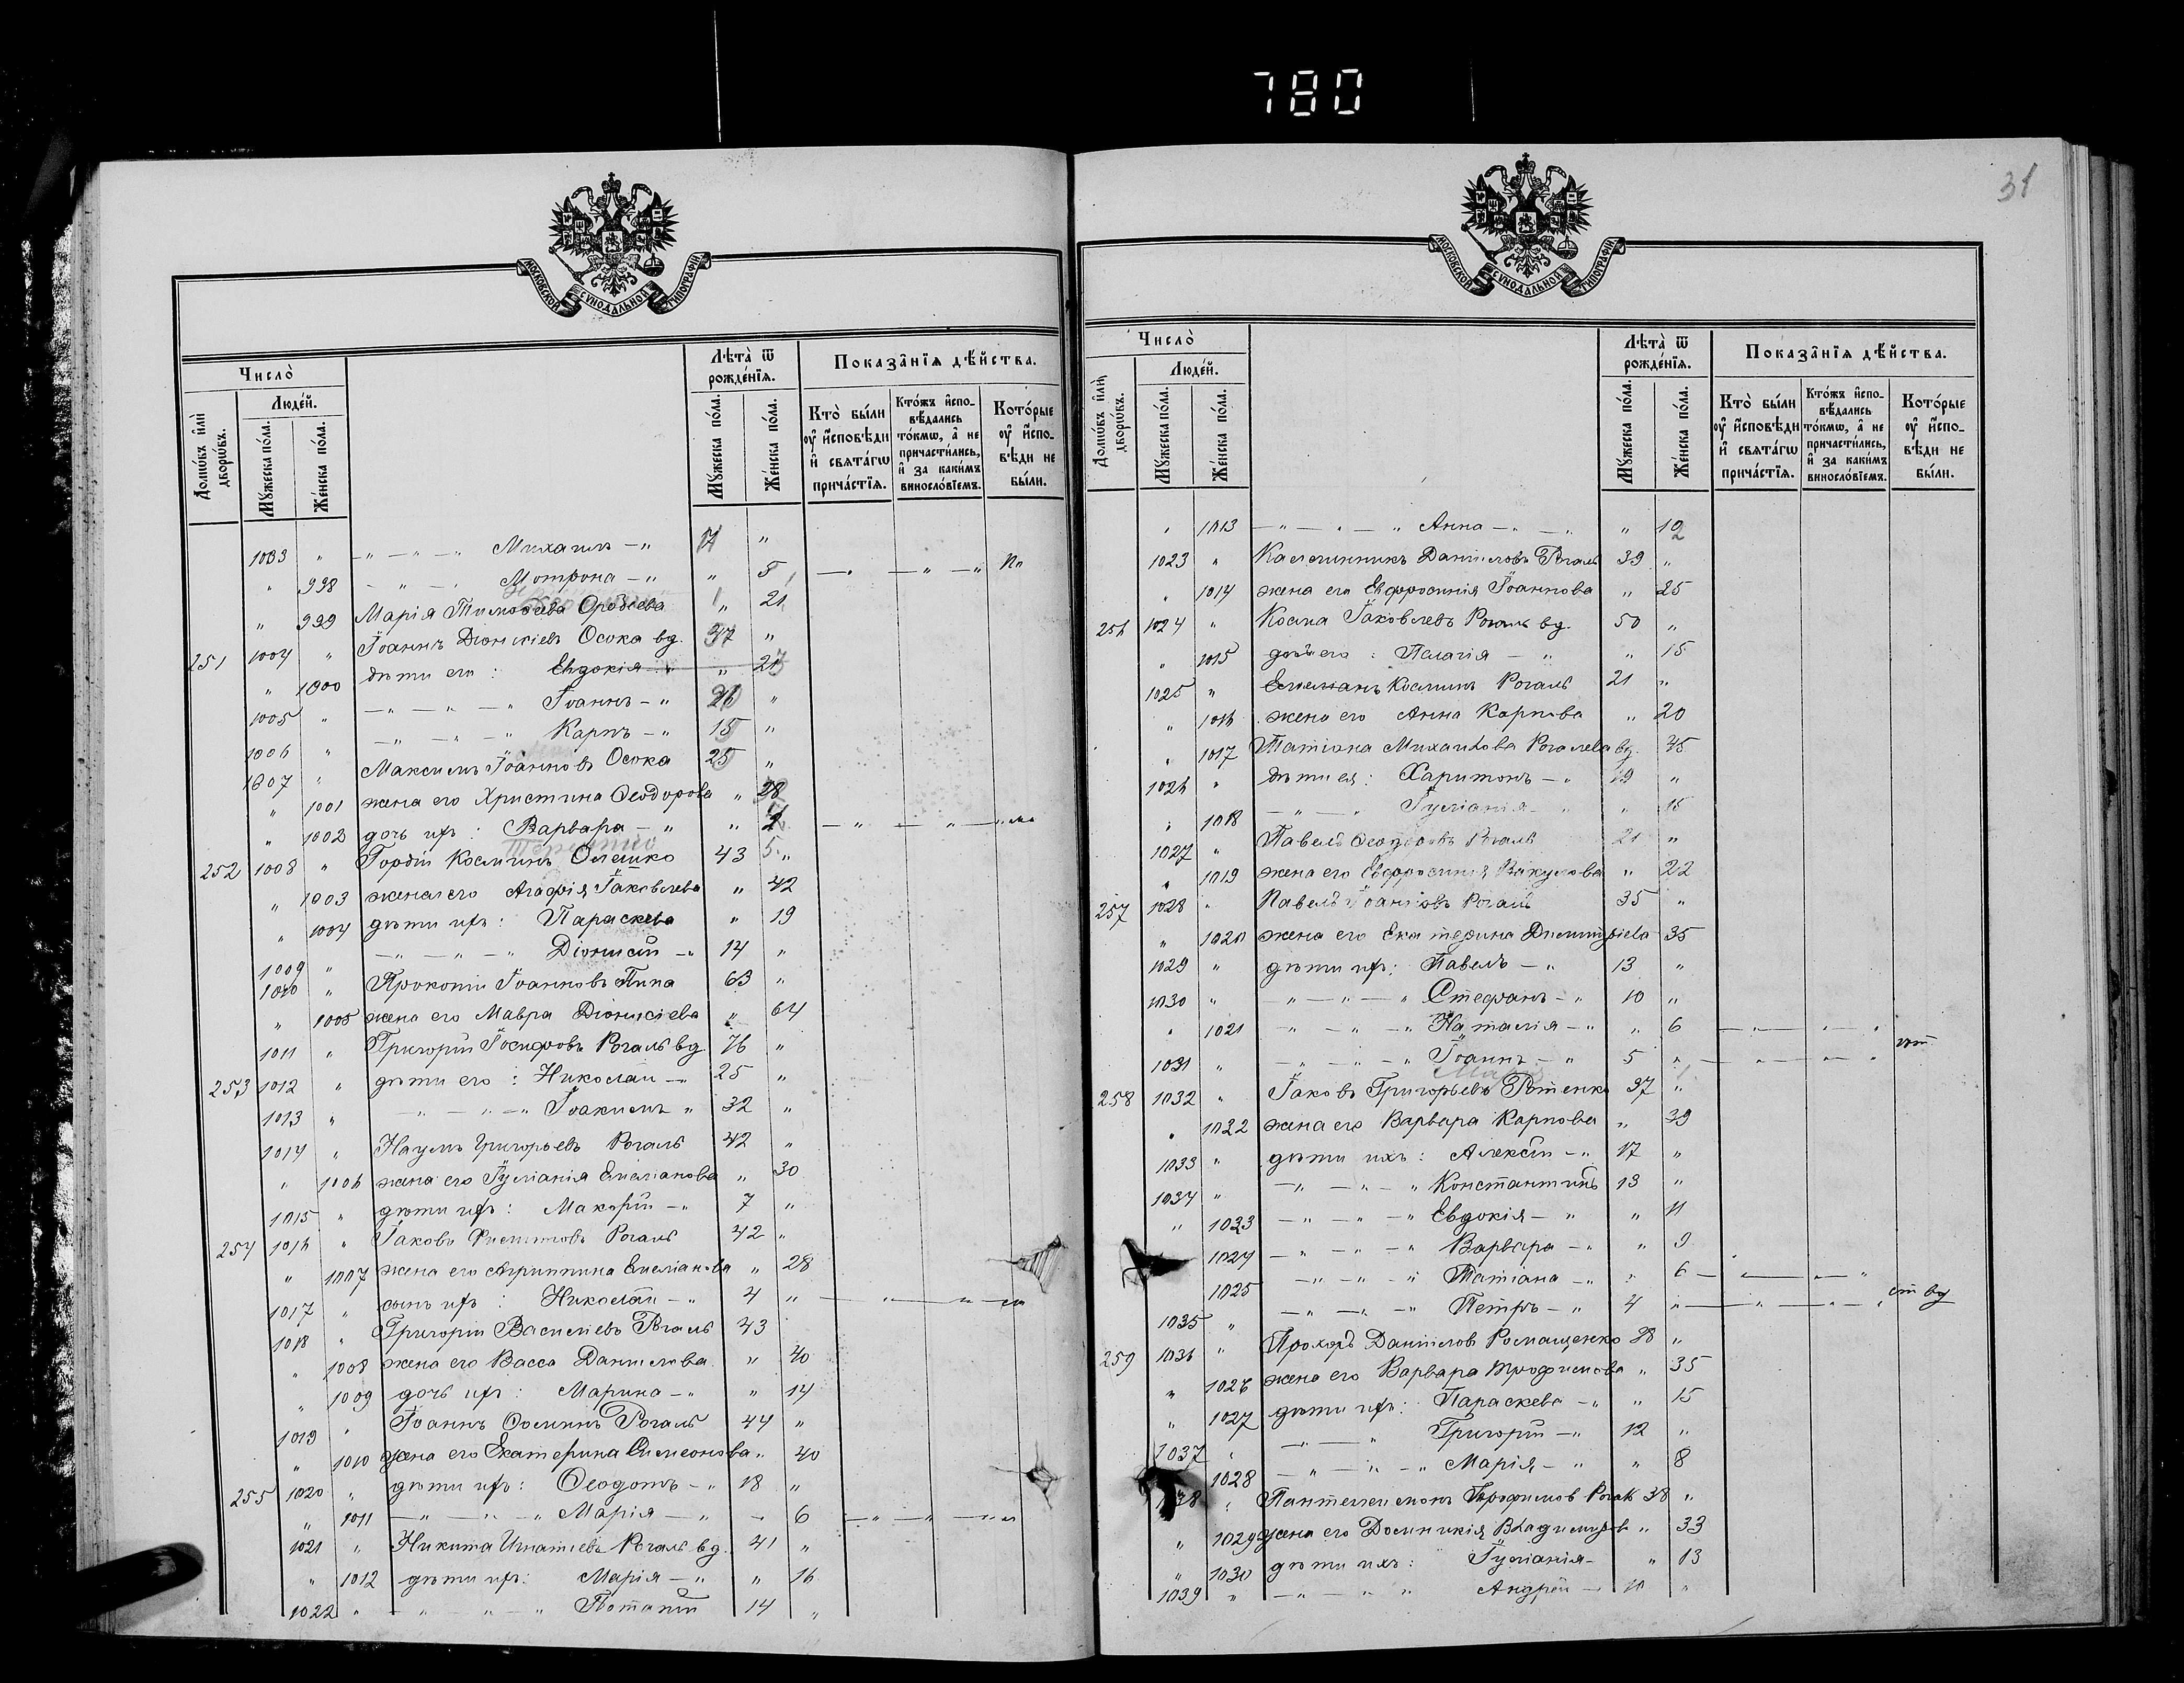 780
31
МОСКОВСКОЙ СУНОДАЛЬНОЙ ТИПОГРАФІИ
Число̀
Лѣта̀ ѿ рожде́нїѧ.
Показа̑нїѧ дѣ́йства.
Домѡ́въ и҆лѝ дворѡ́въ.
Люде́й.
Мꙋ́жеска по́ла.
Же́нска по́ла.
Мꙋ́жеска по́ла.
Же́нска по́ла.
Кто̀ бы́ли ᲂу҆ и҆́сповѣди и҆ свѧта́гѡ прича́стїѧ.
Кто́жъ и҆спо-вѣ́дались то́кмѡ, а҆ не причасти́лись, и҆ за каки́мъ виносло́вїемъ.
Кото́рые ᲂу҆ и҆́спо-вѣди не бы́ли.
1003 " — " — " — " Михаилъ — " "
" 998 — " — Мотрона — " " 5 — " — " — "
" 999 Марія Тимоѳеева " 21
251 1004 " Іоаннъ Діонисіевъ Осока вд. 47 "
" 1000 дѣти его : Евдокія — " "
1005 " — " — " — " Іоаннъ — " "
1006 " — " — " — " Карпъ — " 15 "
1007 " Максимъ Іоанновъ Осока 25 "
" 1001 жена его Христина Ѳеодорова " 28
" 1002 дочь ихъ : Варвара — " " — " — " — "
252 1008 " Гордій Косминъ Олешко 43 "
" 1003 жена его Агафія Іаковлева " 42
" 1004 дѣти ихъ : Параскева " 19
1009 " — " — " — " Діонисій — " 14 "
1010 " Прокопій Іоанновъ Пипа 63 "
" 1005 жена его Мавра Діонисіева " 64
1011 " Григорій Іосифовъ Рогаль вд 76 "
253 1012 " дѣти его : Николай — " 25 "
1013 " — " — " — " Іоакимъ " 32 "
1014 " Наумъ Григорьевъ Рогаль 42 "
" 1006 жена его Іуліанія Емеліанова " 30
1015 " дѣти ихъ : Макарій — " 7 "
254 1016 " Іаковъ Рогаль 42 "
" 1007 жена его Агриппина Емеліанова " 28
1017 " сынъ ихъ : Николай — " 4 " — " — " —
1018 " Григорій Василіевъ Рогаль 43
" 1008 жена его Васса Даніилова " 40
" 1009 дочь ихъ : Марина — " " 14
1019 " Іоаннъ Ѳоминъ Рогаль 44 "
" 1010 жена его Екатерина Симеонова " 40
255 1020 " дѣти ихъ : Ѳеодотъ — " 18 "
" 1011 — " — " — " Марія — " " 6 — " — " — "
1021 " Никита Игнатіевъ Рогаль вд. 41 "
" 1012 дѣти ихъ : Марія — " " 16
1022 " — " — " — " Потапій 14 "
Число̀
Лѣта̀ ѿ рожде́нїѧ.
Показа̑нїѧ дѣ́йства.
Домѡ́въ и҆лѝ дворѡ́въ.
Люде́й.
Мꙋ́жеска по́ла.
Же́нска по́ла.
Мꙋ́жеска по́ла.
Же́нска по́ла.
Кто̀ бы́ли ᲂу҆ и҆́сповѣди и҆ свѧта́гѡ прича́стїѧ.
Кто́жъ и҆спо-вѣ́дались то́кмѡ, а҆ не причасти́лись, и҆ за каки́мъ виносло́вїемъ.
Кото́рые ᲂу҆ и҆́спо-вѣди не бы́ли.
" 1013 — " — " — " Анна — " — " " 12
1023 " Каллиникъ Даніиловъ Рогаль 39 "
" 1014 жена его Евфросинія Іоаннова " 25
256 1024 " Косма Іаковлевъ Рогаль вд. 50 "
" 1015 дочь его : Пелагія — " " 15
1025 " Емеліанъ Косминъ Рогаль 21 "
" 1016 жена его Анна Карпова " 20
" 1017 Татіана Михаилова Рогалева вд. 45
1026 " дѣти ея : Харитонъ — " 19 "
" 1018 — " — " Іуліанія — " " 15
1027 " Павелъ Ѳеодоровъ Рогаль 21 "
" 1019 жена его Евфросинія Вакулова " 22
257 1028 " Павелъ Іоанновъ Рогаль 35 "
" 1020 жена его Екатерина Димитріева 35
1029 " дѣти ихъ : Павелъ — " 13 "
1030 " — " — " — " Стефанъ — " 10 "
" 1021 — " — " — " Наталія — " " 6 — " — " — "
1031 " — " — " — " Іоаннъ — " 5 " — " — " — "
258 1032 " Іаковъ Григорьевъ 37 "
" 1022 жена его Варвара Карпова " 39
1033 " дѣти ихъ : Алексій — " 17 "
1034 " — " — " — " Константинъ 13 "
" 1023 — " — " — " Евдокія — " " 11
" 1024 — " — " — " Варвара — " " 9
1025 — " — " — " Татіана — " " 6 — " — " — "
1035 " — " — " — " Петръ — " 4 " — " — " — "
259 1036 " Прохоръ Даніиловъ Ромащенко 38 "
" 1026 жена его Варвара Трофимова " 35
" 1027 дѣти ихъ : Параскева — " " 15
1037 " — " — " Григорій — " 12 "
1028 — " — " — " Марія — " " 8
1038 " Пантелеимонъ Трофимовъ Рогаль 38 "
" 1029 жена его Домникія Владимірова " 33
" 1030 дѣти ихъ : Іуліанія — " 13
1039 " — " — " " Андрей — 10 "